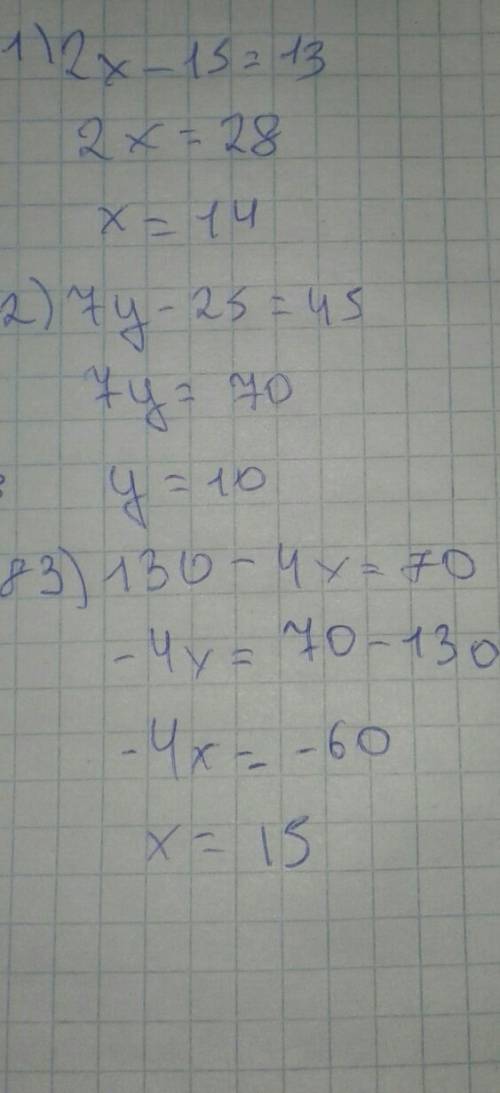 1) 2x - 15 = 13
2x = 28
x = 14
2) 7y - 25 = 45
7y = 70
y = 10
3) 130 - 4x = 70
-4x = 70 - 130
-4x = -60
x = 15